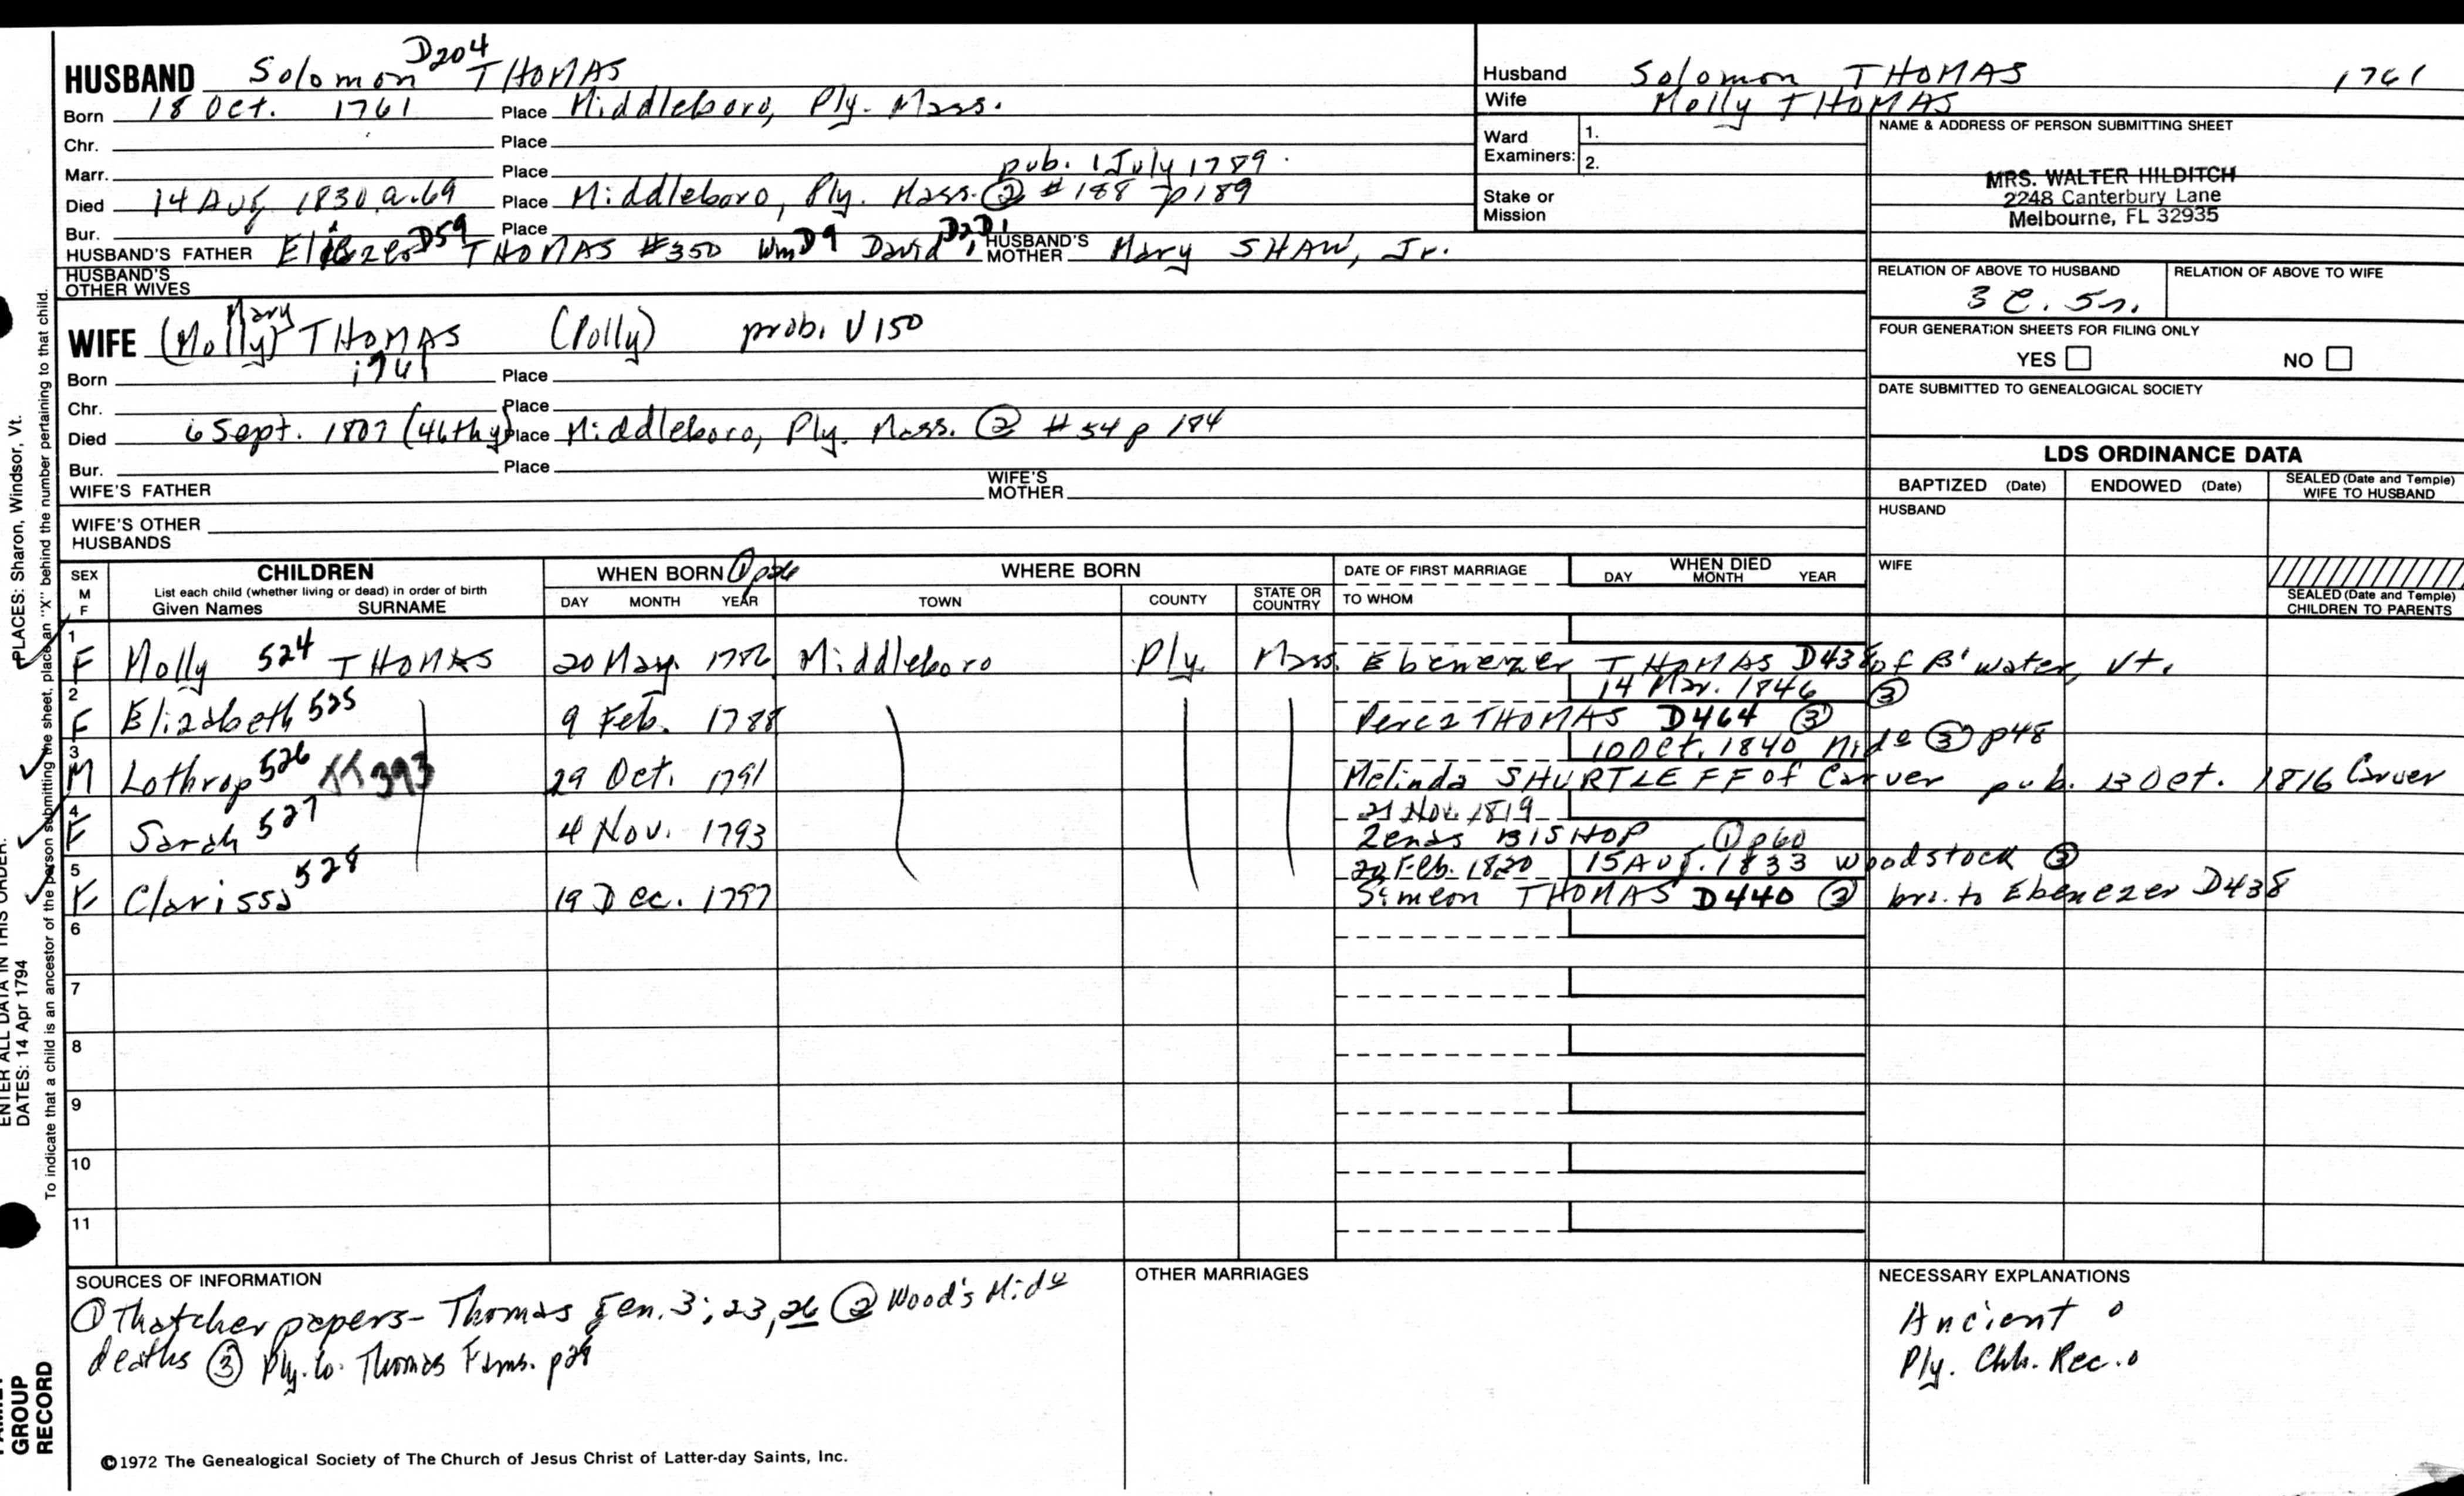 D204
HUSBAND Solomon THOMAS
Born 18 Oct. 1761 Place Middleboro, Ply. Mass.
Chr. Place
Marr. Place pub. 1 July 1789.
Died 14 Aug 1830 a. 69 Place Middleboro, Ply. Mass. ② #188 p189
Bur. Place
HUSBAND'S FATHER D59 THOMAS #350 Wm D9 David D2 D1 HUSBAND'S MOTHER Mary SHAW, Jr.
HUSBAND'S OTHER WIVES
Mary
WIFE (Molly) THOMAS (Polly) prob. V150
Born Place
Chr. Place
Died 6 Sept. 1807 (46thy) Place Middleboro, Ply. Mass. ② #54 p 184
Bur. Place
WIFE'S FATHER WIFE'S MOTHER
WIFE'S OTHER HUSBANDS
Husband Solomon THOMAS 1761
Wife Molly THOMAS
Ward Examiners: 1.
2.
Stake or Mission
NAME & ADDRESS OF PERSON SUBMITTING SHEET
MRS. WALTER HILDITCH
2248 Canterbury Lane
Melbourne, FL 32935
RELATION OF ABOVE TO HUSBAND RELATION OF ABOVE TO WIFE
3 C. 5r.
FOUR GENERATION SHEETS FOR FILING ONLY
YES NO
DATE SUBMITTED TO GENEALOGICAL SOCIETY
LDS ORDINANCE DATA
BAPTIZED (Date) ENDOWED (Date) SEALED (Date and Temple) WIFE TO HUSBAND
HUSBAND
WIFE
SEALED (Date and Temple) CHILDREN TO PARENTS
SEX M F CHILDREN WHEN BORN ① p26 WHERE BORN DATE OF FIRST MARRIAGE WHEN DIED
List each child (whether living or dead) in order of birth
Given Names SURNAME DAY MONTH YEAR TOWN COUNTY STATE OR COUNTRY TO WHOM DAY MONTH YEAR
1 F Molly 524 THOMAS 20 May. 1786 Middleboro Ply. Mass. Ebenezer THOMAS D438 of B'water, Vt.
14 Mar. 1846 ③
2 F Elizabeth 525 9 Feb. 1788 Perez THOMAS D464 ③
10 Oct. 1840 Mido ③ p48
3 M Lothrop 526 393 29 Oct. 1791 Melinda SHURTLEFF of Carver pub. 13 Oct. 1816 Carver
21 Nov. 1819
4 F Sarah 527 4 Nov. 1793 Zenas BISHOP ① p60
20 Feb. 1820 15 Aug. 1833 Woodstock ③
5 F Clarissa 528 19 Dec. 1797 Simeon THOMAS D440 ③ bro. to Ebenezer D438
6
7
8
9
10
11
SOURCES OF INFORMATION
① Thatcher papers - Thomas Gen. 3; 23, 26 ② Wood's Mido
deaths ③ Ply. Co. Thomas Fams. p29
OTHER MARRIAGES
NECESSARY EXPLANATIONS
Ancient o
Ply. Chh. Rec. o
©1972 The Genealogical Society of The Church of Jesus Christ of Latter-day Saints, Inc.
PLACES: Sharon, Windsor, Vt.
ENTER ALL DATA IN THIS ORDER:
DATES: 14 Apr 1794
To indicate that a child is an ancestor of the person submitting the sheet, place an "X" behind the number pertaining to that child.
GROUP
RECORD